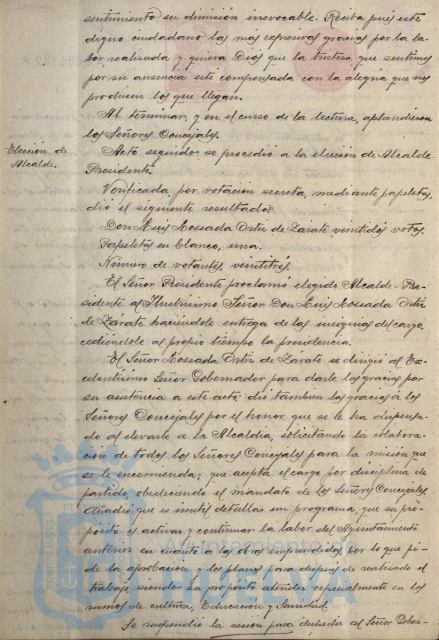 sentimiento su dimisión irrevocable. Reciba pues este
digno ciudadano las más expresivas gracias por la la-
bor realizada y quiera Dios que la tristeza que sentimos
por su ausencia esté compensada con la alegria que nos
producen los que llegan.
Al terminar, y en el curso de la lectura, aplaudieron
los Señores Concejales.
Elección de
Alcalde.
Acto seguido se procedió a la elección de Alcalde
Presidente.
Verificada por votación secreta, mediante papeletas,
dió el siguiente resultado:
Don Luis Mossada Ortiz de Zárate veintidós votos.
Papeletas en blanco, una.
Número de votantes, veintitrés.
El Señor Presidente proclamó elegido Alcalde-Pre-
sidente al Ilustrisimo Señor Don Luis Mossada Ortiz
de Zárate haciendole entrega de las insignias del cargo,
cediéndole al propio tiempo la presidencia.
El Señor Mossada Ortiz de Zárate se dirigió al Ex-
celentísimo Señor Gobernador para darle las gracias por
su asistencia a este acto; dió tambien las gracias á los
Señores Concejales por el honor que se le ha dispensa-
do al elevarle a la Alcaldia, solicitando la colabora-
ción de todos los Señores Concejales para la misión que
se le encomienda; que acepta el cargo por disciplina de
partido, obedeciendo el mandato de los Señores Concejales.
Añadió que es inutil detallar un programa, que su pro-
pósito es activar y continuar la labor del Ayuntamiento
anterior en cuanto á las obras emprendidas por lo que pi-
de la aprobación y los planos para después de realizado el
trabajo siendo su propósito atender especialmente en los
ramos de cultura, Educación y Sanidad.
Se suspendió la sesión para despedir al Señor Gober-
Ayuntamiento de
HUELVA